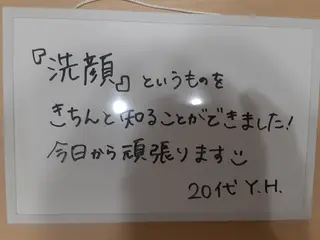 『洗顔』というものを
きちんと知ることができました!
今日から頑張ります
20代 Y.H.